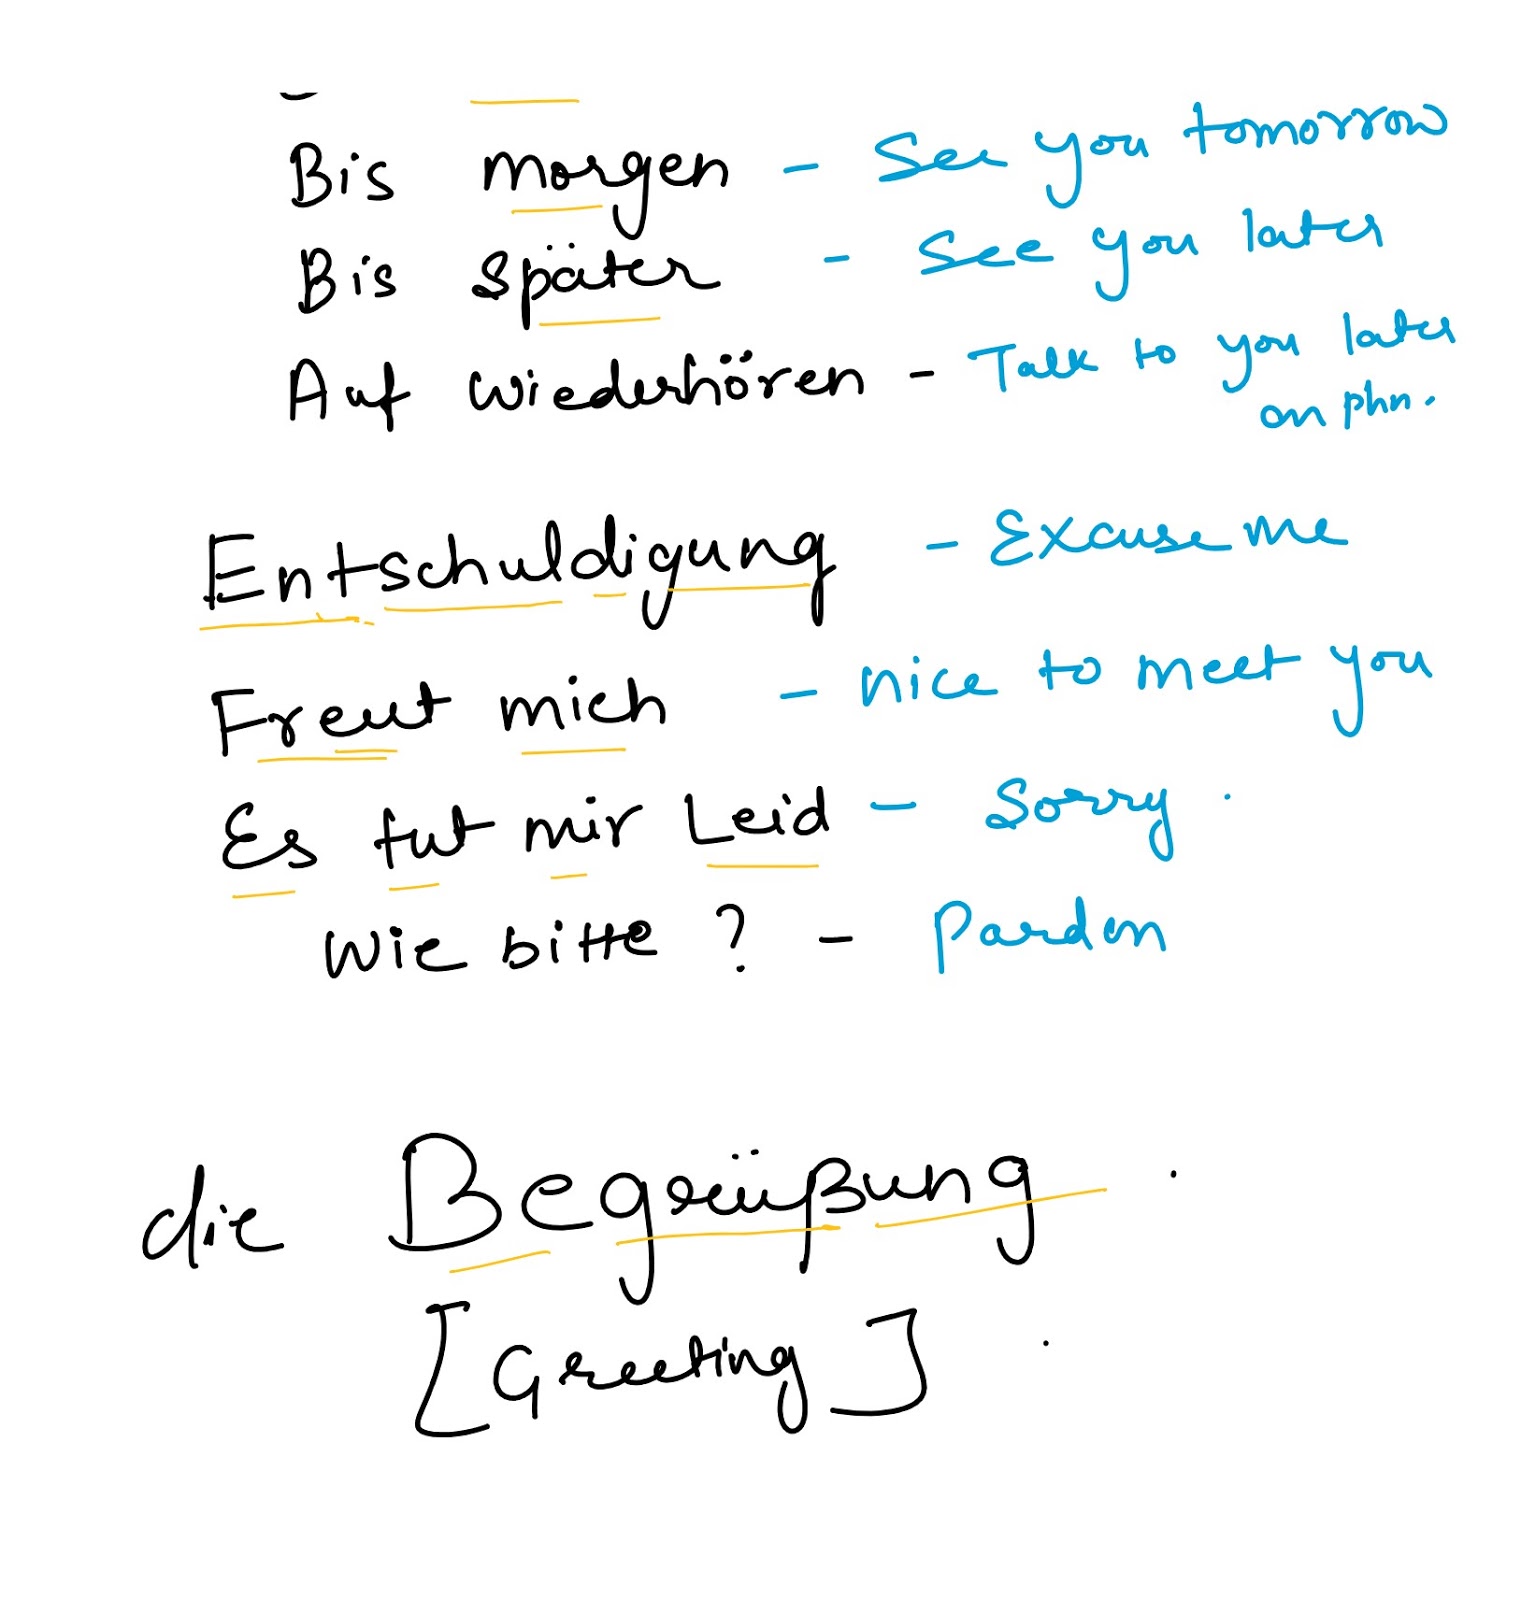 Bis morgen - See you tomorrow
Bis später - See you later
Auf wiederhören - Talk to you later
on phn.
Entschuldigung - Excuse me
Freut mich - nice to meet you
Es tut mir Leid - Sorry.
Wie bitte ? - Pardon
die Begrüßung.
[Greeting].